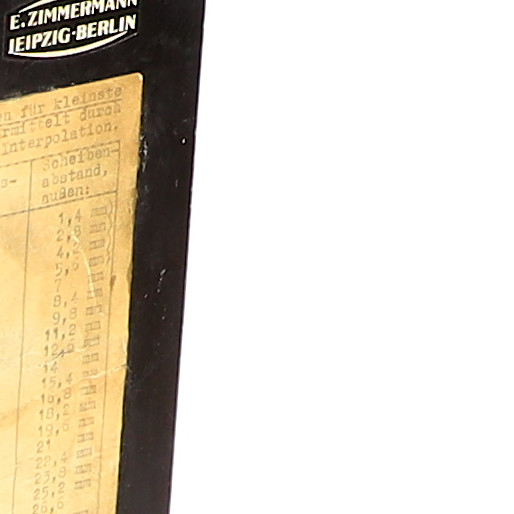 E. ZIMMERMANN
LEIPZIG-BERLIN
en für kleinste
rmittelt durch
Interpolation.
s- Scheiben-
abstand,
außen:
1,4 mm
2,8 mm
4,2 mm
5,6 mm
7 mm
8,4 mm
9,8 mm
11,2 mm
12,6 mm
14 mm
15,4 mm
16,8 mm
18,2 mm
19,6 mm
21 mm
22,4 mm
23,8 mm
25,2 mm
26,6 mm